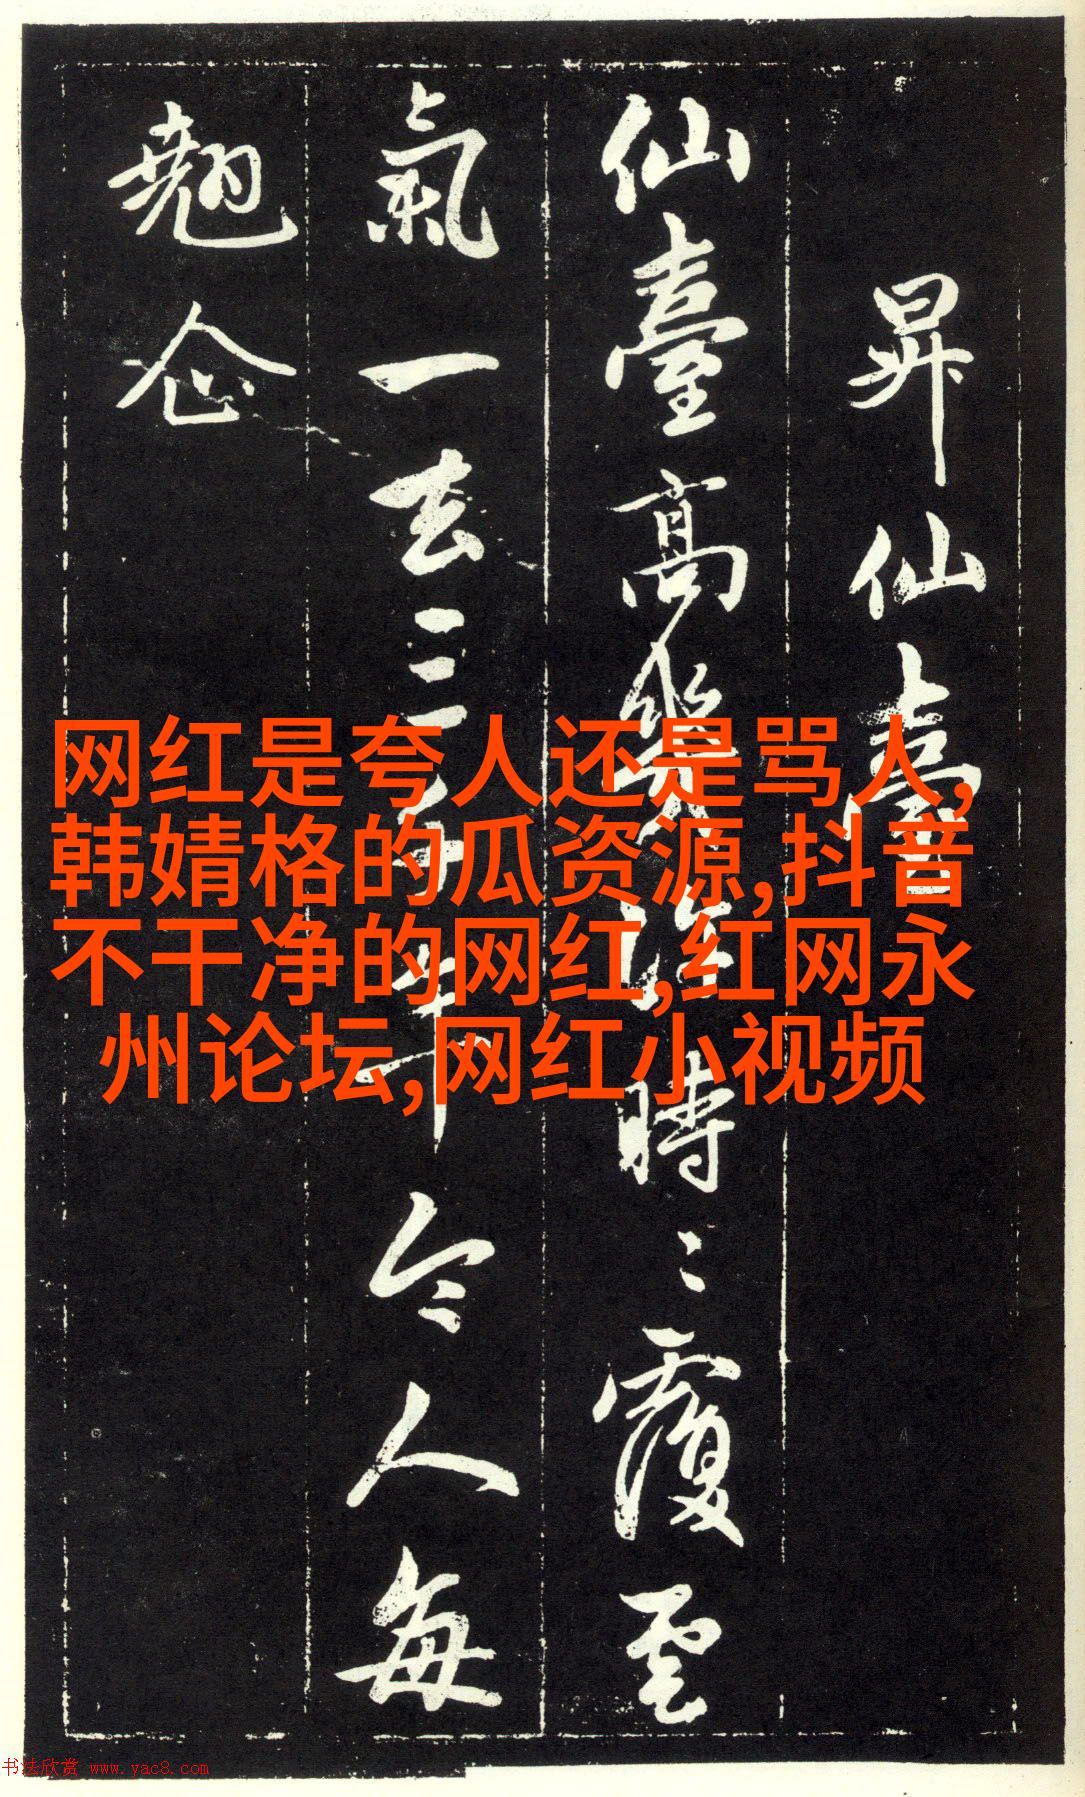 昇仙臺
仙臺高幾許時〻覆雲
氣一去三千年令人每
翹企
网红是夸人还是骂人,
韩婧格的瓜资源,抖音
不干净的网红,红网永
州论坛,网红小视频
书法欣赏 www.yac8.com